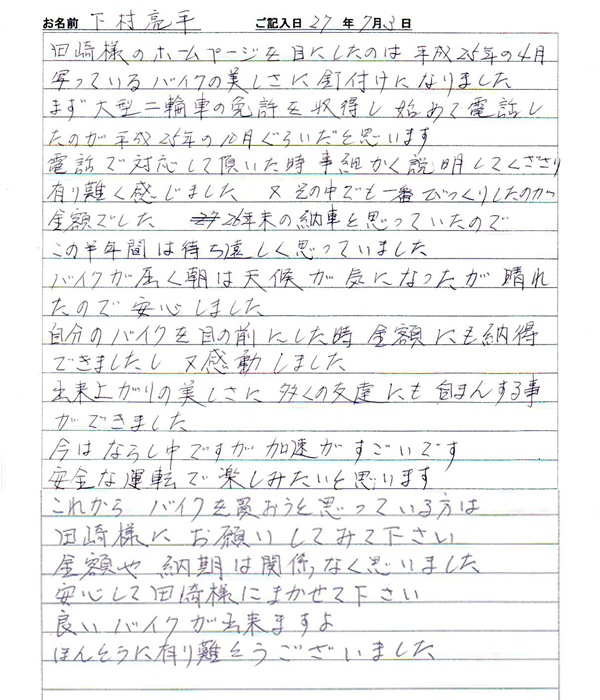 お名前 下村亮平 ご記入日 27年7月3日
田崎様のホームページを目にしたのは 平成25年の4月
写っているバイクの美しさに 釘付けになりました
まず大型二輪車の免許を取得し 始めて電話し
たのが平成25年の10月ぐらいだと思います
電話で対応して頂いた時 事細かく説明してくださり
有り難く感じました 又その中でも一番びっくりしたのが
金額でした 26年末の納車と思っていたので
この半年間は待ち遠しく思っていました
バイクが届く朝は天候が気になったが 晴れ
たので安心しました
自分のバイクを目の前にした時 金額にも納得
できましたし 又感動しました
出来上がりの美しさに 多くの友達にも自まんする事
ができました
今はならし中ですが 加速がすごいです
安全な運転で楽しみたいと思います
これから バイクを買おうと思っている方は
田崎様に お願いしてみて下さい
金額や 納期は関係なく思いました
安心して田崎様にまかせて下さい
良いバイクが出来ますよ
ほんとうに有り難とうございました